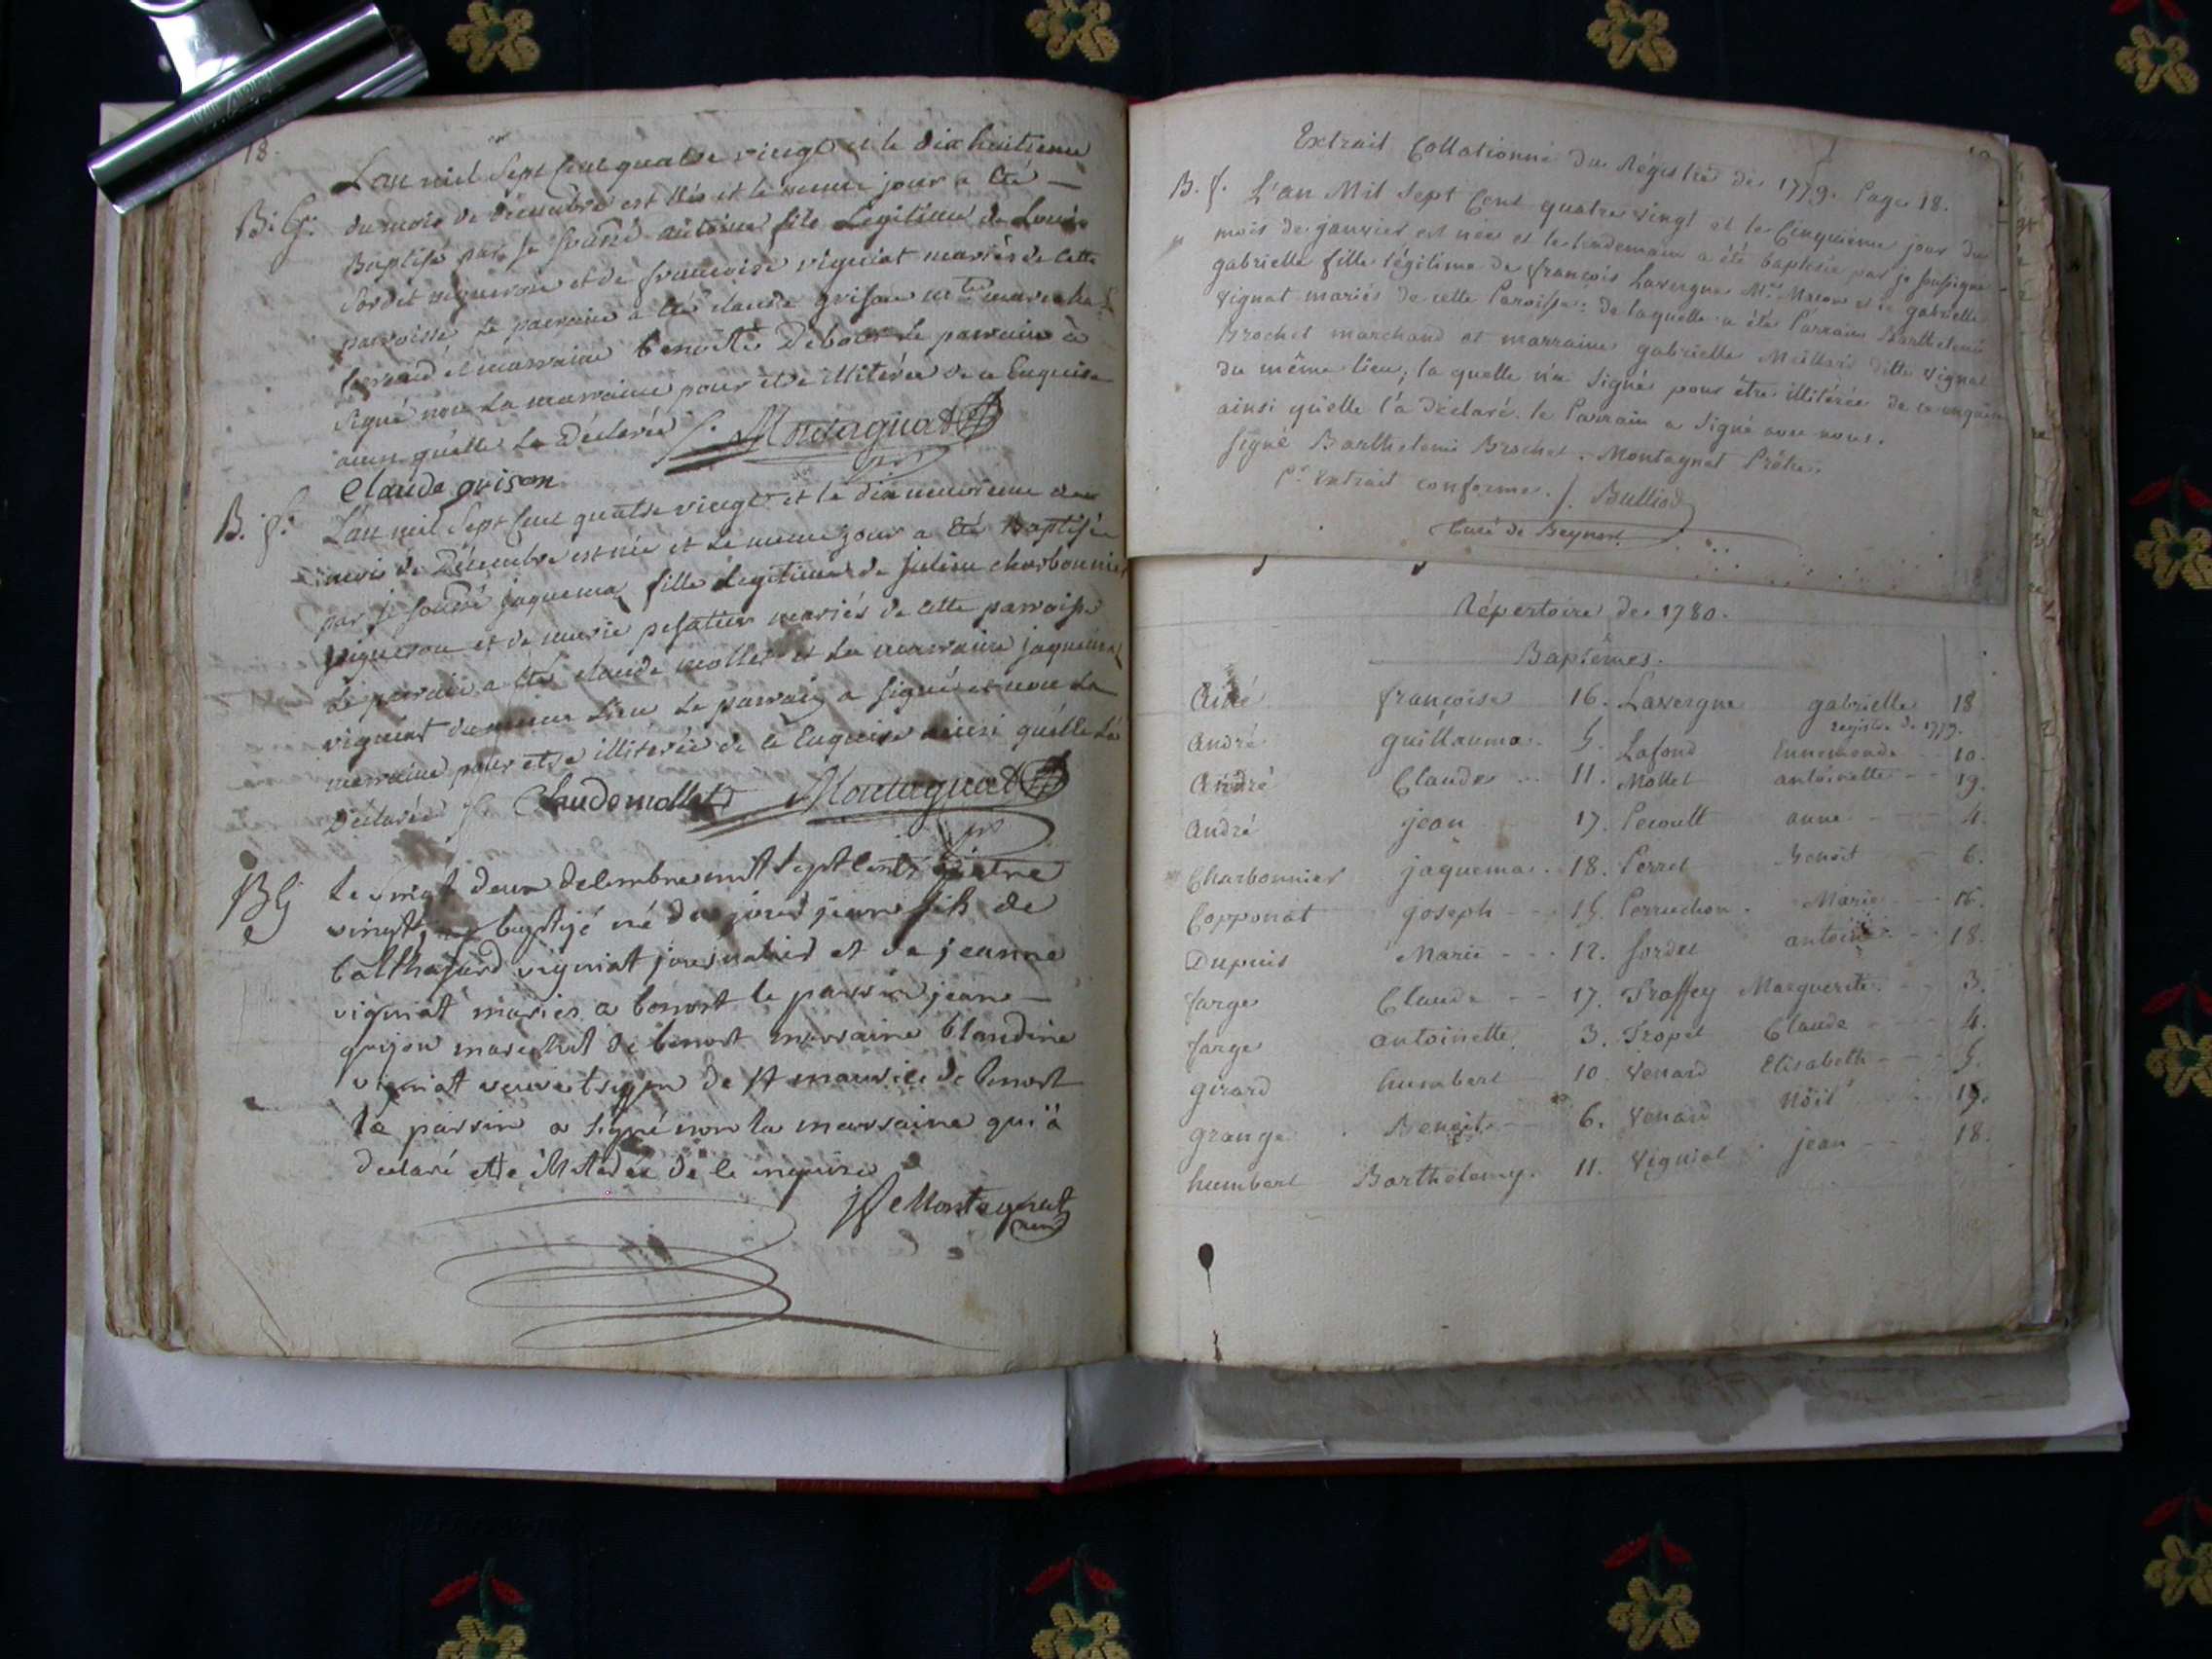 18.
L'an mil Sept Cent quatre vingt et le dix huitieme
B: G: du mois de décembre est Nés et le meme jour a été
Baptisé par je soussé antoine fils Legitime de Louis
Sordet vigneron et de françoise vigniat mariés de cette
parroisse le parrain a été claude grison
et marraine benoite Debour le parrain a
signé non La marraine pour etre illiterée de ce Enquise
ainsy qu'elle La Déclarée Montagnat
Claude grison
B. f: L'an mil Sept Cent quatre vingt et le dix neuvieme du
mois de Décembre est née et le meme jour a été Baptisée
par je soussé jaquema fille Legitime de julien charbonnier
vigneron et de marie pesatier mariés de cette parroisse
Le parrain a été claude mollet et La marraine jaquema
vigniat du meme Lieu Le parrain a signé et non La
marraine pour etre illiterée de ce Enquise ainsi qu'elle La
Déclarée Claude mollet Montagnat
BG Le vingt deux decembre mil sept cents quatre
vingt baptisé né du jour jean fils de
balthasard vigniat journalier et de jeanne
vigniat mariés a benost le parrin jean
grison marechal de benost marraine blandine
vigniat veuve de st maurice de benost
le parrin a signé non la marraine qui a
declaré etre illiterée de ce enquise
Montagnat
Extrait Collationné du Régistre de 1779. Page 18.
B. f. L'an Mil Sept Cent quatre vingt et le Cinquieme jour du
mois de janvier est née et le lendemain a été baptisée par je soussigné
gabrielle fille légitime de françois Lavergne Me. Maçon et de gabrielle
vignat mariés de cette Paroisse: de laquelle a été Parrain Barthelemi
Brochet marchand et marraine gabrielle Meillard ditte vignat
du même lieu; la quelle n'a Signé pour être illitérée de ce enquise
ainsi qu'elle l'a déclaré. le Parrain a signé avec nous.
signé Barthelemi Brochet. Montagnat Prêtre.
Pr. Extrait conforme. J. Bulliod
Curé de Beynost
Répertoire de 1780.
Baptêmes.
Aimé françoise 16. Lavergne gabrielle 18
registre de 1779.
André guillaume. 5. Lafond Ennemonde 10.
André Claude 11. Mollet antoinette 19.
André jean 17. Pecoult anne 4.
Charbonnier jaquema. 18. Perret Benoit 6.
Copponat joseph 15. Perruchon. Marie 16.
Dupuis Marie 12. Sordet antoine 18.
farge Claude 17. Troffey Marguerite. 3.
farge antoinette 3. Tropet Claude 4.
girard humbert 10. Venard Elisabeth 5.
grange Benoit 6. Venard Nöel 19.
humbert Barthélemy. 11. Vignial jean 18.